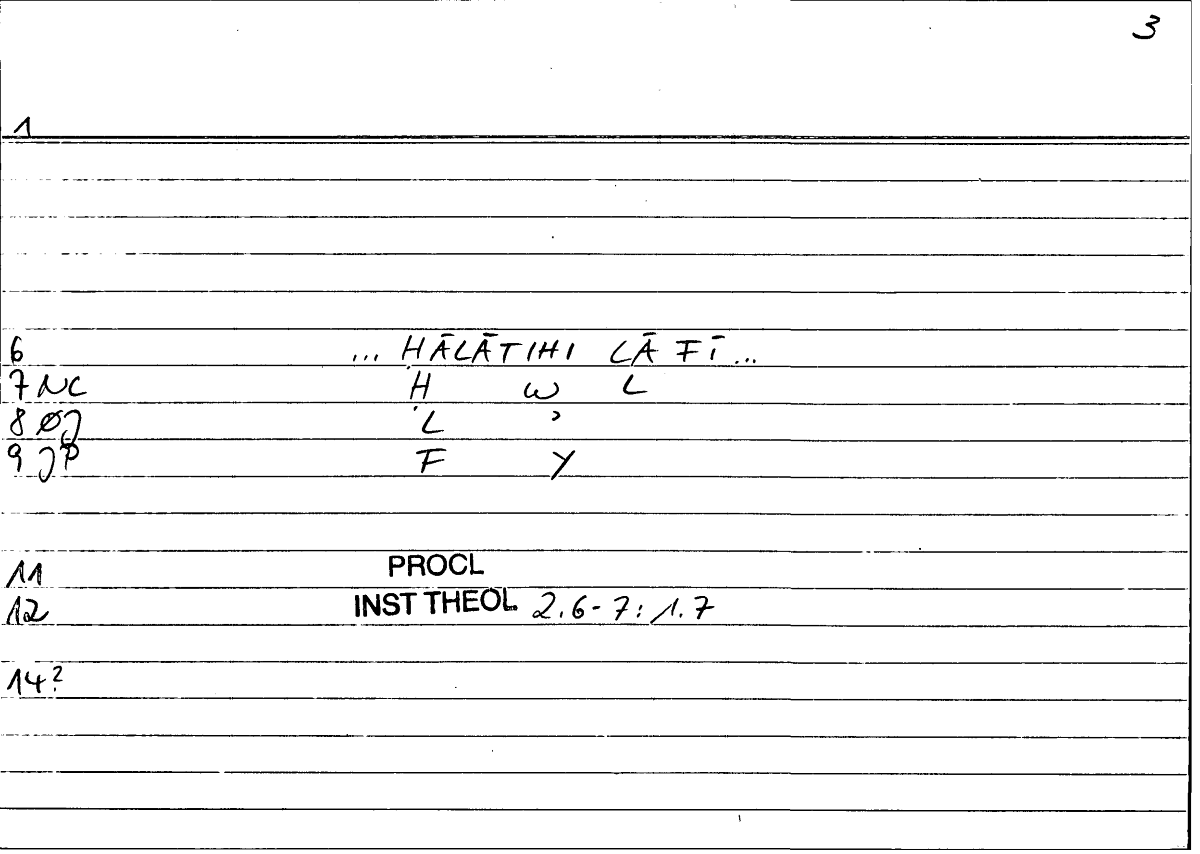 3
1
6 ... ḤĀLĀTIHI LĀ FĪ ...
7 NC Ḥ W L
8 ØJ L ʾ
9 JP F Y
11 PROCL
12 INST THEOL 2.6-7: 1.7
14?